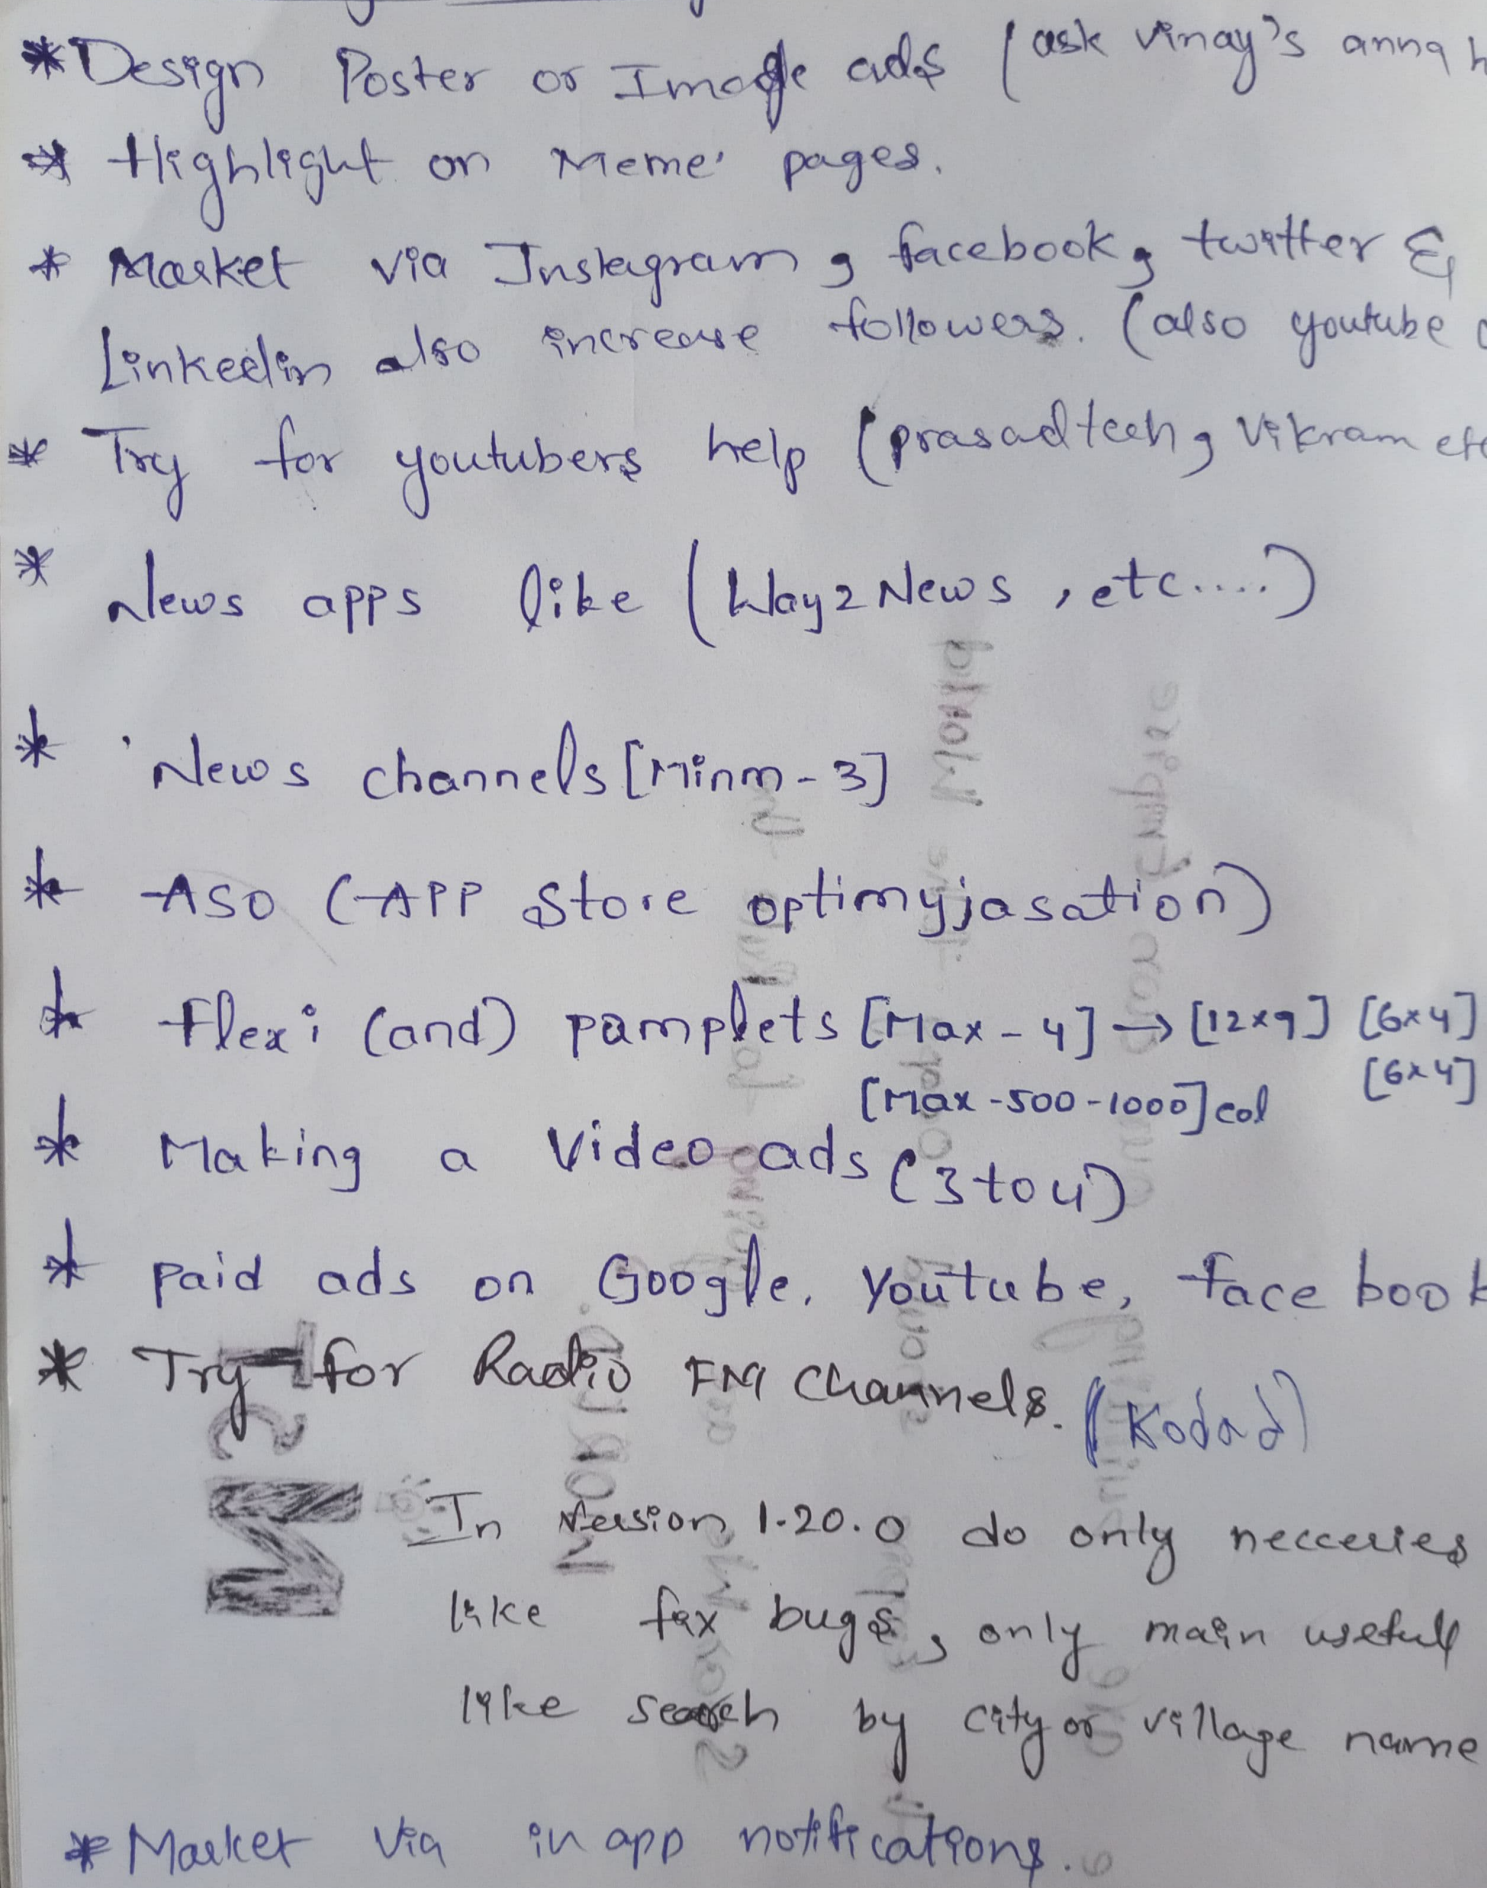 * Design Poster or Image ads (ask vinay's anna
* Highlight on Meme pages.
* Market via Instagram, facebook, twitter &
Linkedin also increase followers. (also youtube
* Try for youtubers help (prasadtech, Vikram etc
* News apps like (Way2News, etc....)
* News channels [Minm-3]
* ASO (APP Store optimyjasation)
* flexi (and) pamplets [Max-4] → [12x9] [6x4]
[6x4]
[Max-500-1000] col
* Making a Video ads (3 to 4)
* paid ads on Google, Youtube, face book
* Try for Radio FM Channels. (Kodad)
In Version 1.20.0 do only necceries
like fix bugs, only main usefull
like search by city or village name
* Market via in app notifications.